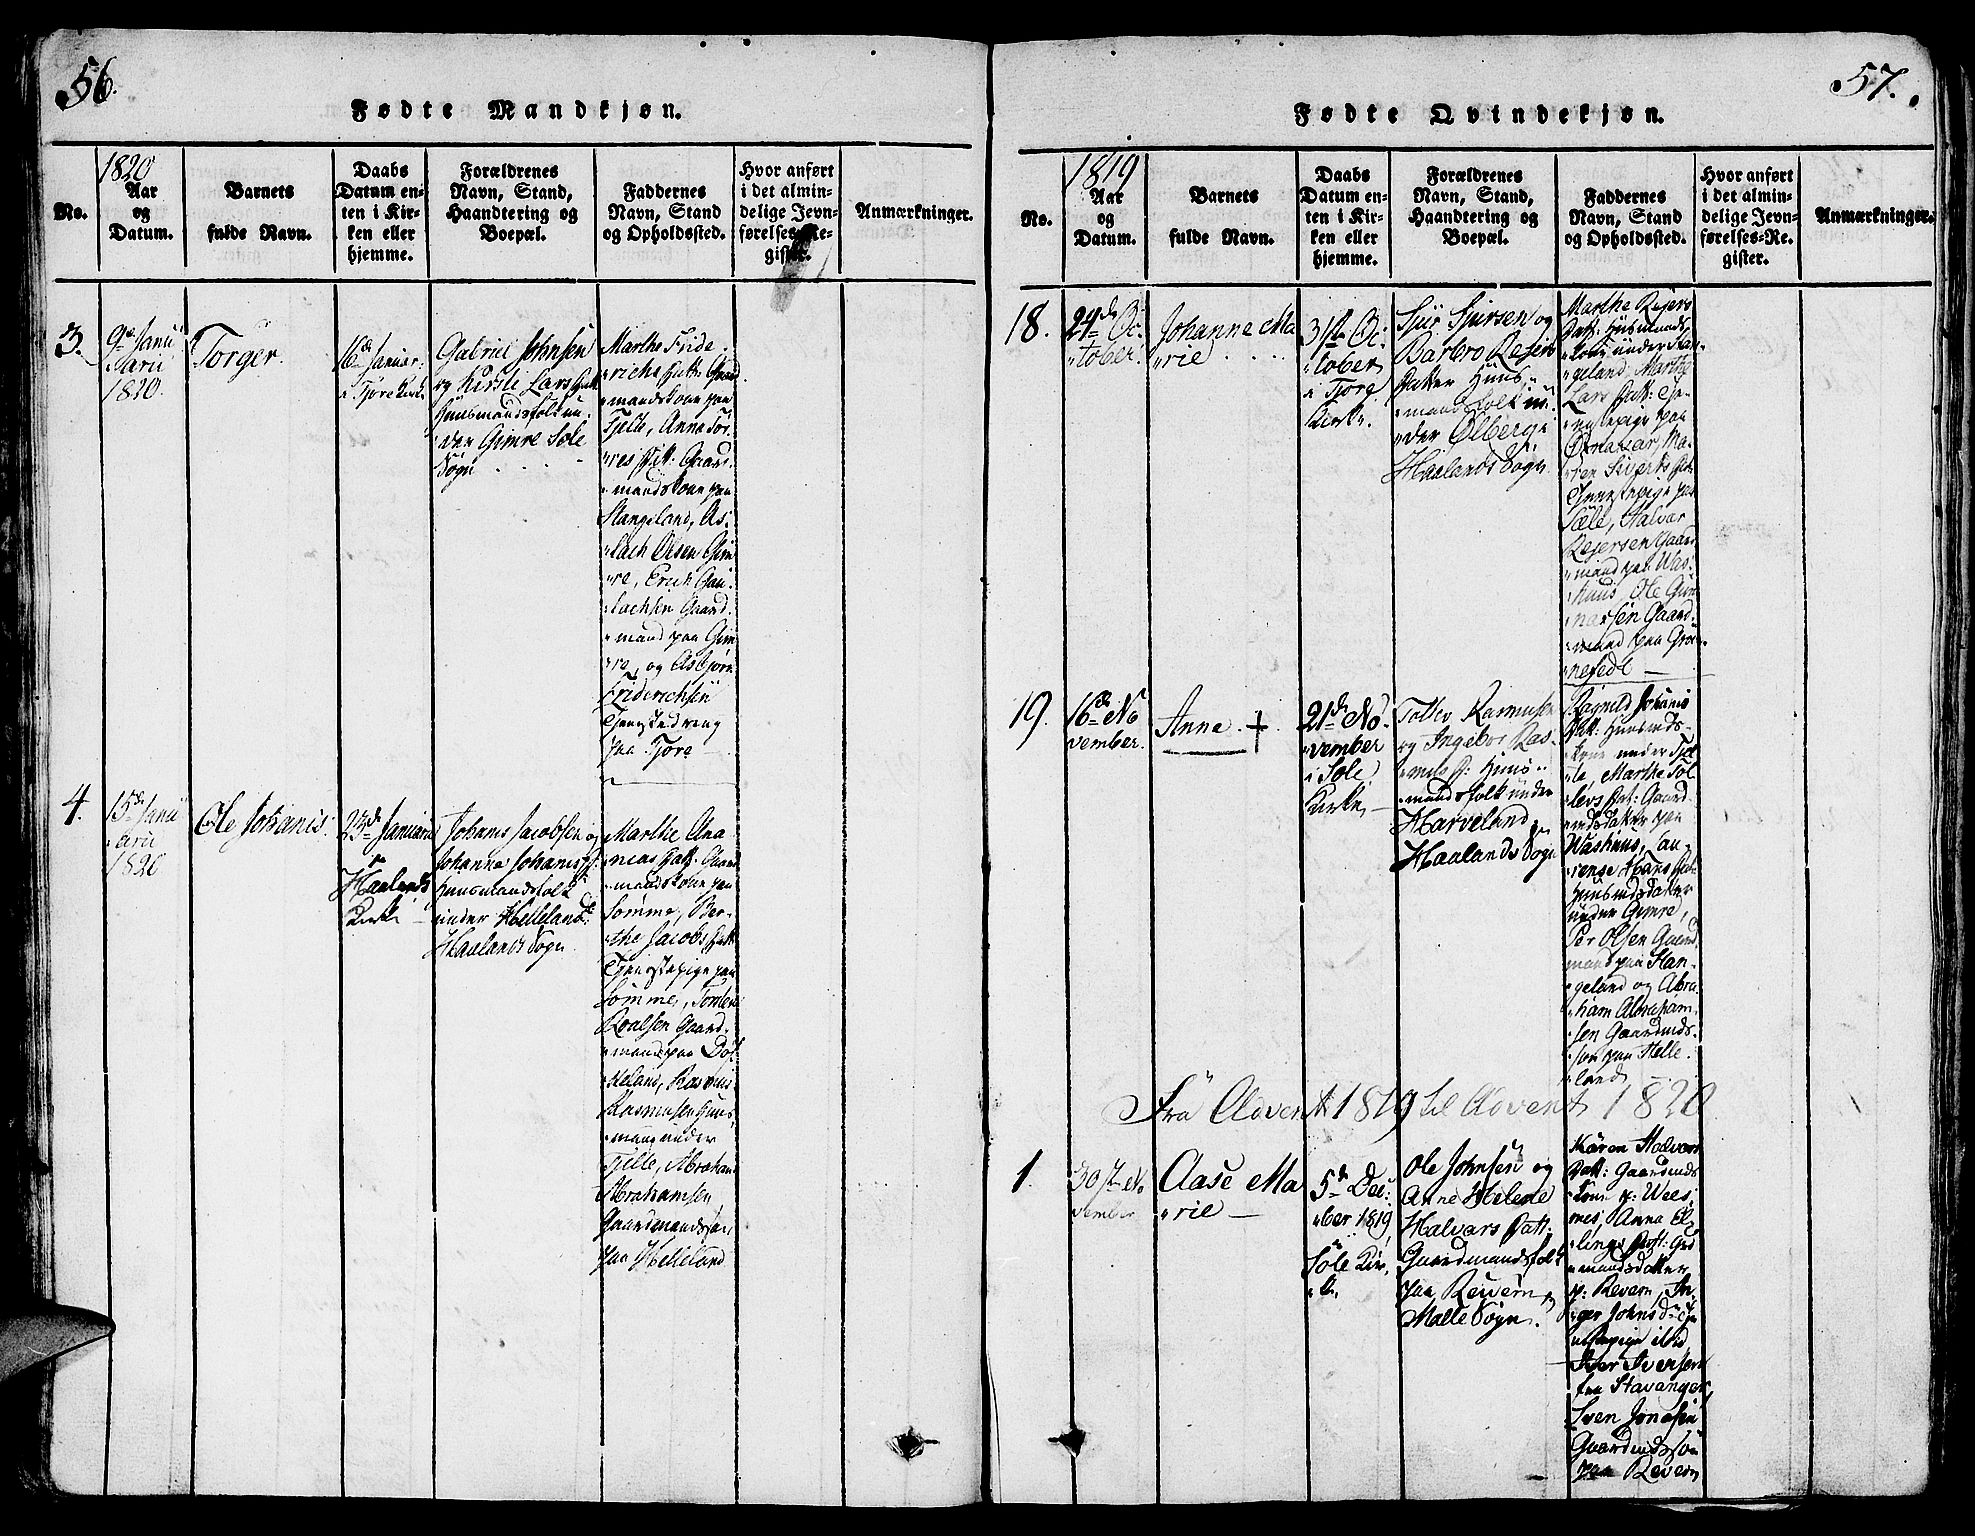 56.
Fødte Mandkjøn.
No.
1820
Aar
og
Datum.
Barnets
fulde Navn.
Daabs
Datum en-
ten i Kir-
ken eller
hjemme.
Forældrenes
Navn, Stand,
Haandtering og
Boepæl.
Faddernes
Navn, Stand
og Opholdssted.
Hvor anført
i det almin-
delige Jevn-
førelses-Re-
gister.
Anmærkninger.
3.
9de Janu
arii
1820.
Torger.
16de Januar
i Tjore Kirke
Gabriel Johnsen
og Kirsti Lars Datt
Huusmandsfolk un
der Gimre Sole
Sogn
Marthe Fride
richs Datt: Gaard
mandskone paa
Tjelte, Anna Tor
res Datt: Gaard
mandskone paa
Stangeland, As
lach Olsen Gim
re, Erich Gau
lachsen Gaard
mand paa Gim
re, og Asbjørn
Friderichsen
Tjenestedreng
paa Tjore
4.
15de Janu
arii
1820
Ole Johanis.
23de Januarii
Haalands
Kirke
Johanis Jacobsen og
Johanna Johanis D:
Huusmandsfolk
under Helleland
Haalands Sogn
Marthe Ana
nias Datt. Gaard
mandskone paa
Somme, Ber
the Jacobs Datt
Tjenestepige paa
Somme,
Roalsen Gaard
mand paa
keland, Rasmus
Rasmusen Huus
mand under
Tjelte, Abraham
Abrahamsen
Gaardmandssøn
paa Helleland
57.
Fødte Qvindekjøn.
No.
1819
Aar
og
Datum.
Barnets
fulde Navn.
Daabs
Datum en-
ten i Kir-
ken eller
hjemme.
Forældrenes
Navn, Stand,
Haandtering og
Boepæl.
Faddernes
Navn, Stand
og Opholdssted.
Hvor anført
i det almin-
delige Jevn-
førelses-Re-
gister.
Anmærkninger.
18.
24de Oc
tober.
Johanne Ma
rie
31te Oc
tober
i Tjore
Kirke.
Sjur Sjursen og
Barbro Rejers
Datter Huus
mandsfolk un
der Ølberg i
Haalands Sogn
Marthe Rejers
Datt: Huusmands
kone under Stan
geland, Marthe
Lars Datt: Tje
nestepige paa
Ma
ren Siverts Dat
Tjenestepige paa
Sæle, Halvar
Rejersen Gaard
mand paa Was
huus, Ole Gun
narsen Gaard
mand paa Gron
nesede
19.
16de No
vember.
Anne. +
21de No
vember
i Sole
Kirke
Tollev Rasmusen
og Ingebor Ras
mus D: Huus
mandsfolk under
Harveland
Haalands Sogn
Ragnild Johanis
Datt: Huusmds
kone under Tjel
te, Marthe Tol
levs Dat: Gaard
mdsdatter paa
Washuus, Lau
rense Hans Dat
Huusmdsdatter
under Gimre,
Per Olsen Gaard
mand paa Stan
geland og Abra
ham Abraham
sen Gaardmds
søn paa Helle
land
Fra Advent 1819 til Advent 1820
1.
30te No
vember
Aase Ma
rie
5te Dec
ber 1819
Sole Kir
ke
Ole Johnsen og
Anne Helene
Halvars Datt:
Gaardmandsfolk
paa Revem
Malle Sogn.
Karen Halvors
Datt: Gaardmds
kone p: Wees
nes, Anna El
lings Datt: Grd
mandsdatter
p: Revem, In
ger Johns D: Tje
nestepige
Iver Iversen
fra Stavanger
Sven Jonasen
Gaardmdssøn
paa Revem